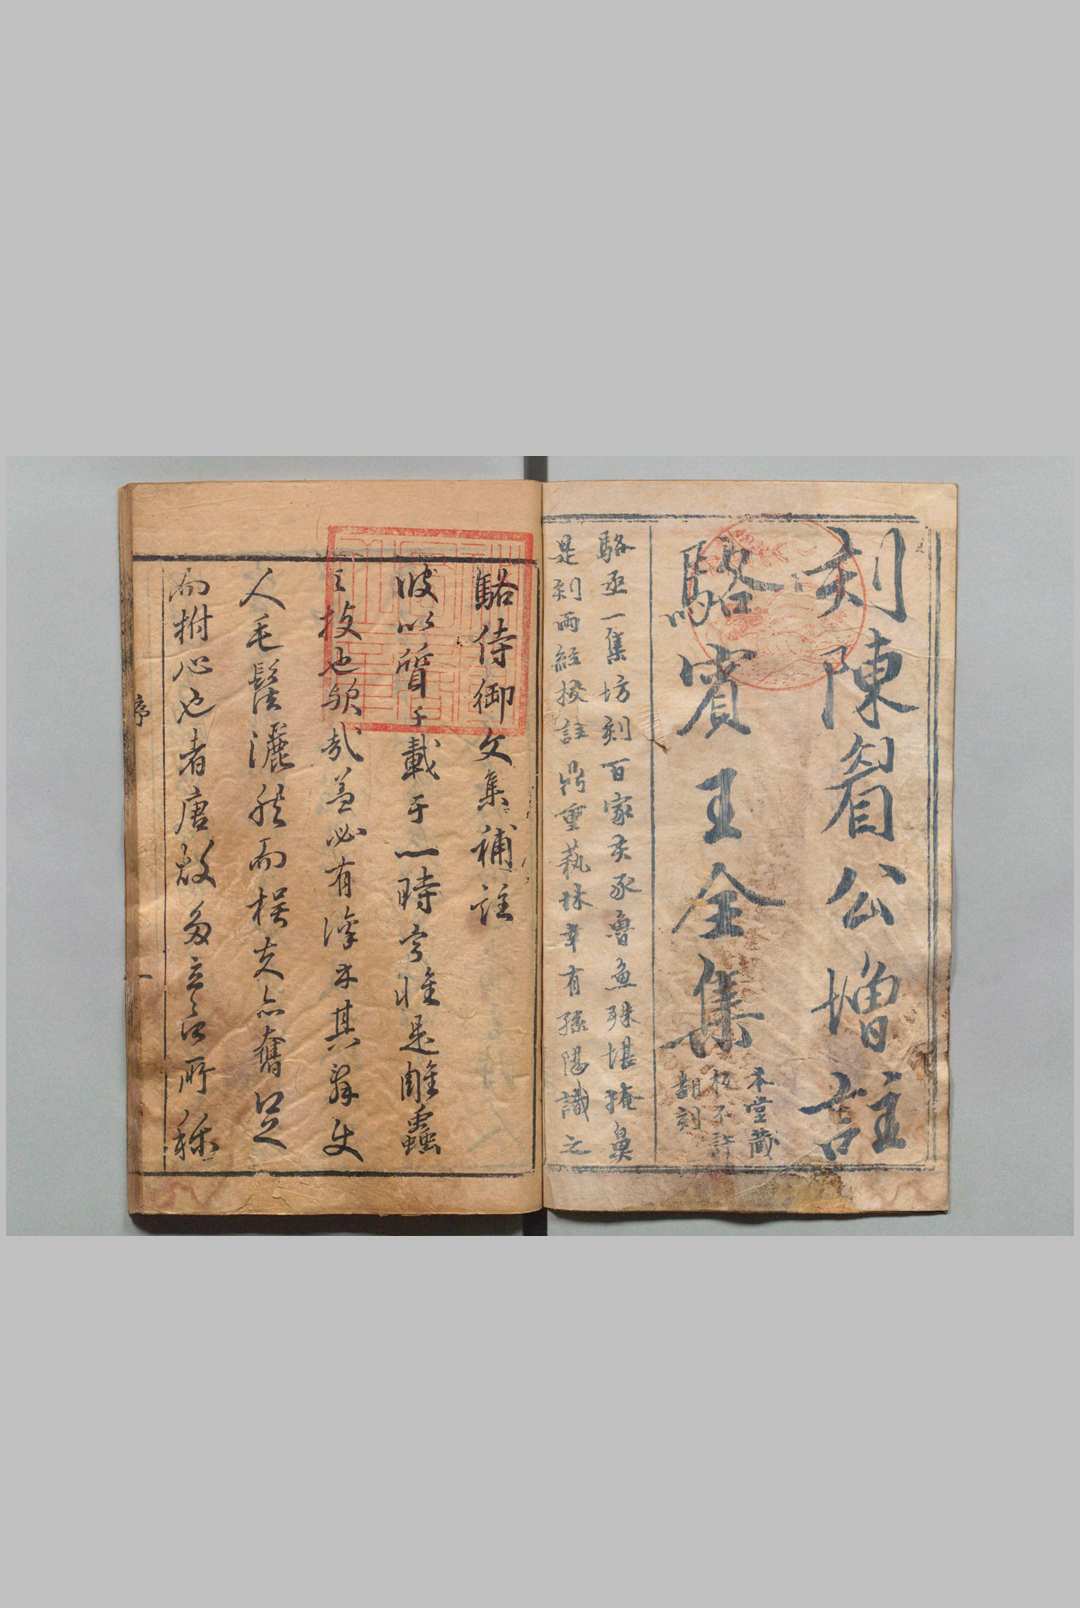 刻陳眉公增註
駱賓王全集
本堂藏
板不許
翻刻
駱丞一集坊刻百家亥豕魯魚殊堪掩鼻
是刻兩經挍註品重藝林幸有孫陽識之
駱侍御文集補註
彼以質千載于一時寧惟是雕蟲
之技也歟哉蓋必有深于其辭使
人毛髮灑然而懦夫亦奮足
而拊心也者唐故多立言所稱
序
一